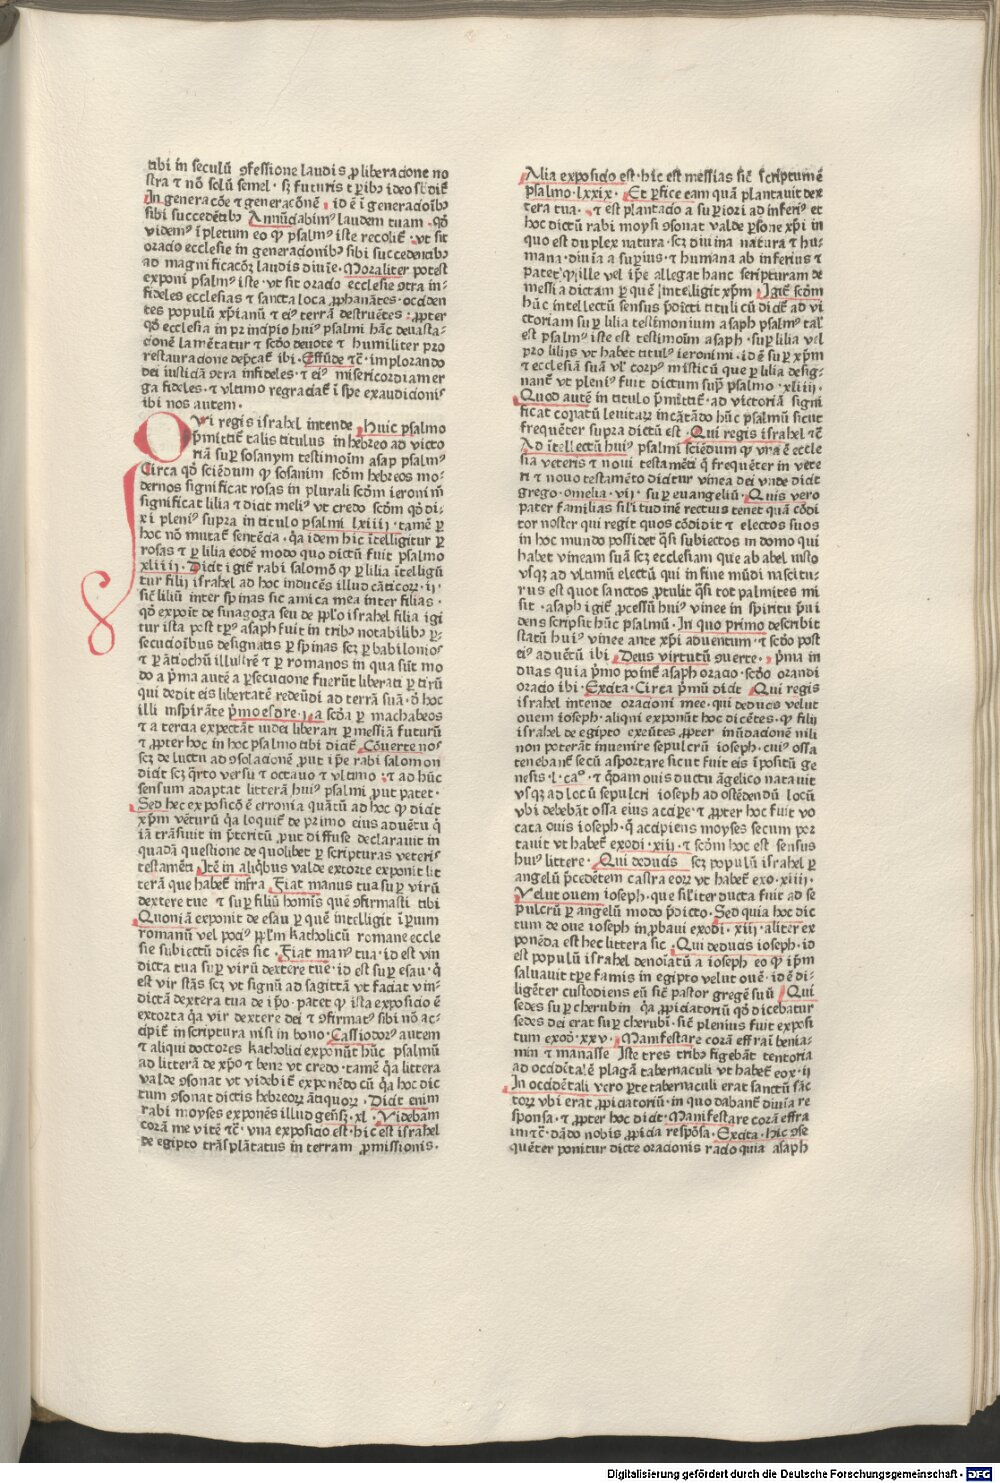 tibi in seculū ꝯfessione laudis ꝓ liberacione no
stra ⁊ nō solū semel · sꝫ futuris tꝑibꝰ ideo sbdit̄
In generacōe ⁊ generacōnē · id ē ī generacōibꝰ
sibi succedētibꝰ Annūciabimꝰ laudem tuam · qđ
videmꝰ īpletum eo ꝙ psalmꝰ iste recolit̄ · vt sit
oracio ecclesie in generacionibꝰ sibi succedentibꝰ
ad magnificacōꝫ laudis diuīe · Moraliter potest
exponi psalmꝰ iste · vt sit oracio ecclesie ꝯtra in⸗
fideles ecclesias ⁊ sancta loca ꝓphanātes · occiden
tes populū xp̄ianū ⁊ eiꝰ terrā destruētes · ꝓpter
qđ ecclesia in principio huiꝰ psalmi hāc deuasta⸗
cionē lamētatur ⁊ scđo deuote ⁊ humiliter pro
restauracione dep̄cat̄ ibi · Effūde ⁊c̄ · implorando
dei iusticiā ꝯtra infideles · ⁊ eiꝰ misericordiam er
ga fideles · ⁊ vltimo regraciat̄ ī spe exaudicionis
ibi nos autem ·
Qvi regis israhel intende · Huic psalmo
p̄mittit̄ talis titulus in hebreo ad victo
riā suꝑ sosanym testimoīm asap psalmꝰ
Circa qđ sciēdum ꝙ sosanim scđm hebreos mo⸗
dernos significat rosas in plurali scđm ieronimū
significat lilia ⁊ dicit meliꝰ vt credo scđm qđ di⸗
xi pleniꝰ supra in titulo psalmi lxiiii · tamē ꝑ
hoc nō mutat̄ sentēcia · qa idem hic ītelligitur ꝑ
rosas ⁊ ꝑ lilia eodē modo quo dictū fuit psalmo
xliiii · Dicit igit̄ rabi salomō ꝙ ꝑ lilia ītelligū
tur filij israhel ad hoc inducēs illud cāticoꝝ · ij ·
sic̄ liliū inter spinas sic amica mea inter filias ·
qđ expoīt de sinagoga seu de pplo israhel filia igi
tur ista post tꝑꝰ asaph fuit in tribꝰ notabilibꝰ ꝑ⸗
secucioībus designatis ꝑ spinas scꝫ ꝑ babilonios
⁊ ꝑ ātiochū illustrē ⁊ ꝑ romanos in qua sūt mo
do a p̄ma autē a ꝑsecucione fuerūt liberati ꝑ cirū
qui dedit eis libertatē redeūdi ad terrā suā · ō hoc
illi inspirāte p̄mo esdre · j · a scđa ꝑ machabeos
⁊ a tercia expectāt iudei liberari ꝑ messiā futurū
⁊ ꝓpter hoc in hoc psalmo tibi dicit̄ Cōuerte nos
scꝫ de luctu ad ꝯsolacionē · put ip̄e rabi salomon
dicit scꝫ q̄rto versu ⁊ octauo ⁊ vltimo ; ⁊ ad hūc
sensum adaptat litterā huiꝰ psalmi put patet ·
Sed hec exposicō ē erronia quātū ad hoc ꝙ dicit
xp̄m vētūrū qa loquit̄ de primo eius aduētu q̄
iā trāsiuit in p̄teritū · put diffuse declarauit in
quadā questione de quolibet ꝑ scripturas veteris
testamēti · Itē in aliqbus valde extorte exponit lit
terā que habet̄ infra · Fiat manus tua suꝑ virū
dextere tue ⁊ suꝑ filiū homīs quē ꝯfirmasti tibi
Quoniā exponit de esau ꝑ quē intelligit īꝑium
romanū vel pociꝰ pplm katholicū romane eccle
sie subiectū dicēs sic · Fiat manꝰ tua · id est vin
dicta tua suꝑ virū dextere tue · id est suꝑ esau · q̄
est vir stās scꝫ vt signū ad sagittā vt faciat vin⸗
dictā dextera tua de ip̄o · patet ꝙ ista exposicio ē
extorta qa vir dextere dei ⁊ ꝯfirmatꝰ sibi nō ac⸗
cipit̄ in scriptura nisi in bono · Cassiodorꝰ autem
⁊ aliqui doctores katholici exponūt hūc psalmū
ad litterā de xp̄o ⁊ bene vt credo · tamē qa littera
valde ꝯsonat vt videbit̄ exponēdo cū qa hoc dic
tum ꝯsonat dictis hebreoꝝ ātiquoꝝ · Dicit enim
rabi moyses exponēs illud geneš · xl · Videbam
corā me vitē ⁊c̄ · vna exposicio est · hic est israhel
de egipto trāsplātatus in terram ꝓmissionis ·
Alia exposicio est · hic est messias sic̄ scriptum ē
psalmo · lxxix · Et ꝑfice eam quā plantauit dex
tera tua · ⁊ est plantacio a suꝑiori ad inferiꝰ et
hoc dictū rabi moysi ꝯsonat valde ꝑsone xp̄i in
quo est duplex natura · scꝫ diuina natura ⁊ hu⸗
mana · diuīa a suꝑius · ⁊ humana ab inferius ⁊
patet ꝙ ille vel ip̄e allegat hanc scripturam de
messia dictam ꝑ quē intelligit xp̄m · Igit̄ scđm
hūc intellectū sensus p̄dicti tituli cū dicit̄ ad vi
ctoriam suꝑ lilia testimonium asaph psalmꝰ tal̄
est psalmꝰ iste est testimoīm asaph · suꝑ lilia vel
pro lilijs vt habet titulꝰ ieronimi · id ē suꝑ xp̄m
⁊ ecclesiā suā vl̄ corpꝰ misticū que ꝑ lilia desig⸗
nant̄ vt pleniꝰ fuit dictum supra psalmo · xliiii ·
Quod autē in titulo p̄mittit̄ · ad victoriā signi
ficat conatū leuitaꝝ incātādo hūc psalmū sicut
frequēter supra dictū est · Qui regis israhel ⁊c̄
Ad ītellectū huiꝰ psalmi sciēdum ꝙ vna ē eccle
sia veteris ⁊ noui testamēti q̄ frequēter in vete
ri ⁊ nouo testamēto dicitur vinea dei vnde dicit
grego · omelia · vij · suꝑ euangeliū · Quis vero
pater familias sil̄itudinē rectius tenet quā cōdi
tor noster qui regit quos cōdidit ⁊ electos suos
in hoc mundo possidet q̄si subiectos in domo qui
habet vineam suā scꝫ ecclesiam que ab abel iusto
vsqꝫ ad vltimū electū qui in fine mūdi nascitu⸗
rus est quot sanctos ꝓtulit q̄si tot palmites mi
sit · asaph igit̄ ꝓcessū huiꝰ vinee in spiritu p̄ui
dens scripsit hūc psalmū · In quo primo describit
statū huiꝰ vinee ante xp̄i aduentum · ⁊ scđo post
eiꝰ aduētū ibi · Deus virtutū ꝯuerte · p̄ma in
duas quia p̄mo poīnt̄ asaph oracio · scđo orandi
oracio ibi · Excita · Circa p̄mū dicit · Qui regis
israhel intende oracioni mee · qui deducis velut
ouem ioseph · aliqui exponūt hoc dicētes · ꝙ filij
israhel de egipto exeūtes · ꝓpter inūdacionē nili
non poterāt inuenire sepulcrū ioseph · cuiꝰ ossa
tenebant̄ secū asportare sicut fuit eis īpositū ge
nesis · l · caº · ⁊ qdam ouis ductu āgelico natauit
vsqꝫ ad locū sepulcri ioseph ad ostēdendū locū
vbi debebāt ossa eius accipe · ⁊ ꝓpter hoc fuit vo
cata ouis ioseph · q̄ accipiens moyses secum por
tauit vt habet̄ exodi · xiij · ⁊ scđm hoc est sensus
huiꝰ littere · Qui deducis scꝫ populū israhel ꝑ
angelū p̄cedētem castra eoꝝ vt habet̄ exo · xiiii ·
Velut ouem ioseph · que sil̄iter ducta fuit ad se
pulcrū ꝑ angelū modo p̄dicto · Sed quia hoc dic
tum de oue ioseph inꝓbaui exodi · xiij · aliter ex
ponēda est hec littera sic · Qui deducis ioseph · id
est populū israhel denoīatū a ioseph eo ꝙ ip̄m
saluauit tꝑe famis in egipto velut ouē · id ē di⸗
ligēter custodiens eū sic̄ pastor gregē suū · Qui
sedes suꝑ cherubin qa ꝓpiciatoriū qđ dicebatur
sedes dei erat suꝑ cherubī · sic̄ plenius fuit exposi
tum exođ · xxv · Manifestare corā effrai benia⸗
min ⁊ manasse Iste tres tribꝰ figebāt tentoria
ad occidētalē plagā tabernaculi vt habet̄ eox · ij
In occidētali vero ꝑte tabernaculi erat sanctū sāc
toꝝ vbi erat ꝓpiciatoriū · in quo dabant̄ diuīa re
sponsa · ⁊ ꝓpter hoc dicit · Manifestare corā effra
im ⁊c̄ · dādo nobis ꝓpicia respōsa · Excita · hic ꝯse
quēter ponitur dicte oracionis racio quia asaph
Digitalisierung gefördert durch die Deutsche Forschungsgemeinschaft - DFG